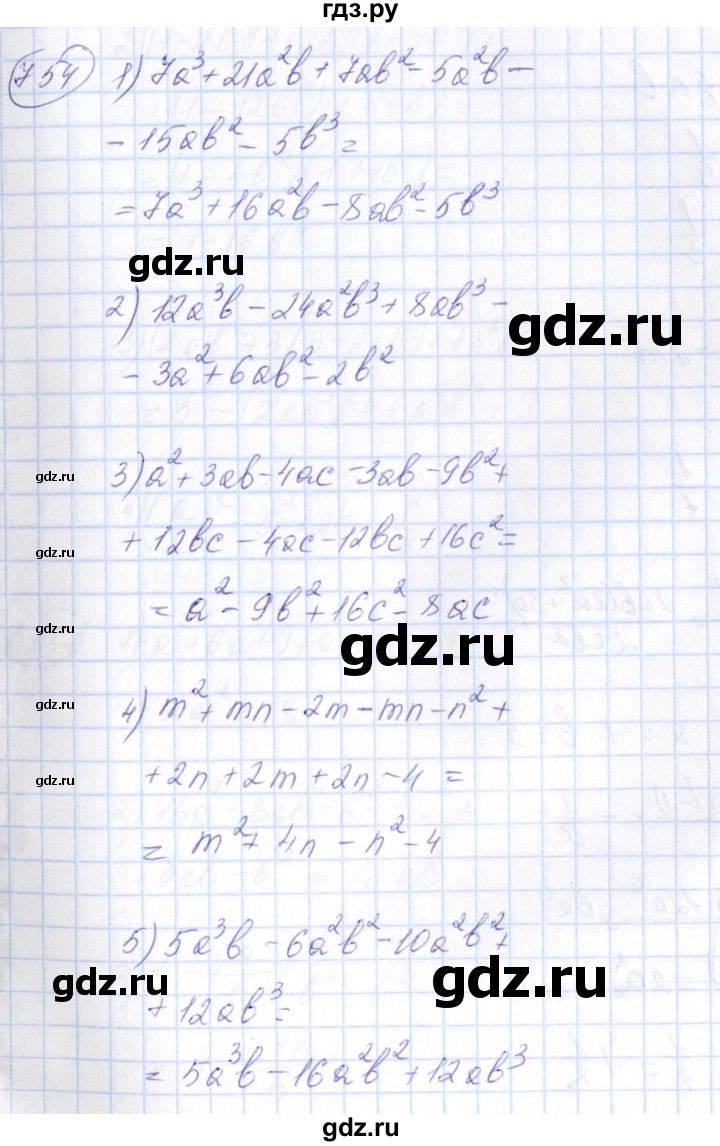 гдз.ру
754 1) 7a³ + 21a²b + 7ab² - 5a²b -
- 15ab² - 5b³ =
= 7a³ + 16a²b - 8ab² - 5b³
gdz.ru
2) 12a³b - 24a²b³ + 8ab³ -
gdz.ru
- 3a² + 6ab² - 2b²
3) a² + 3ab - 4ac - 3ab - 9b² +
gdz.ru
+ 12bc - 4ac - 12bc + 16c² =
gdz.ru
= a² - 9b² + 16c² - 8ac
gdz.ru
gdz.ru
4) m² + mn - 2m - mn - n² +
gdz.ru
+ 2n + 2m + 2n - 4 =
gdz.ru
= m² + 4n - n² - 4
5) 5a³b - 6a²b² - 10a²b² +
gdz.ru
gdz.ru
+ 12ab³ =
= 5a³b - 16a²b² + 12ab³
gdz.ru
gdz.ru